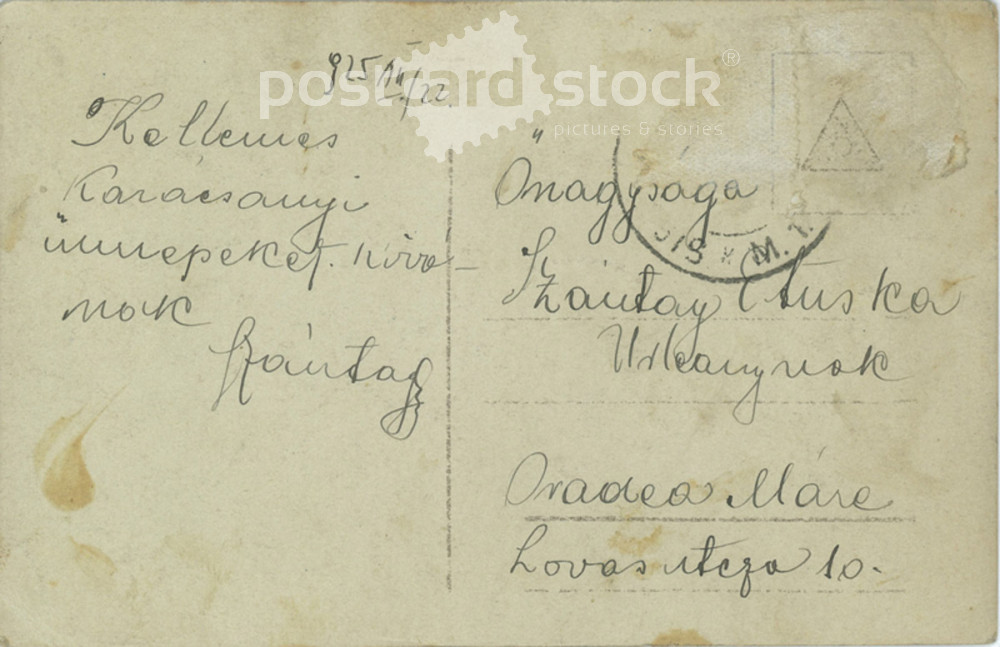 925 XII/22.
Kellemes
Karácsonyi
ünnepeket. kivá-
nok
Szántay
Őnagysága
Szántay Etuska
Urleánynak
Oradea Máre
Lovas utcza 10.
postcard stock®
pictures & stories
M. 1